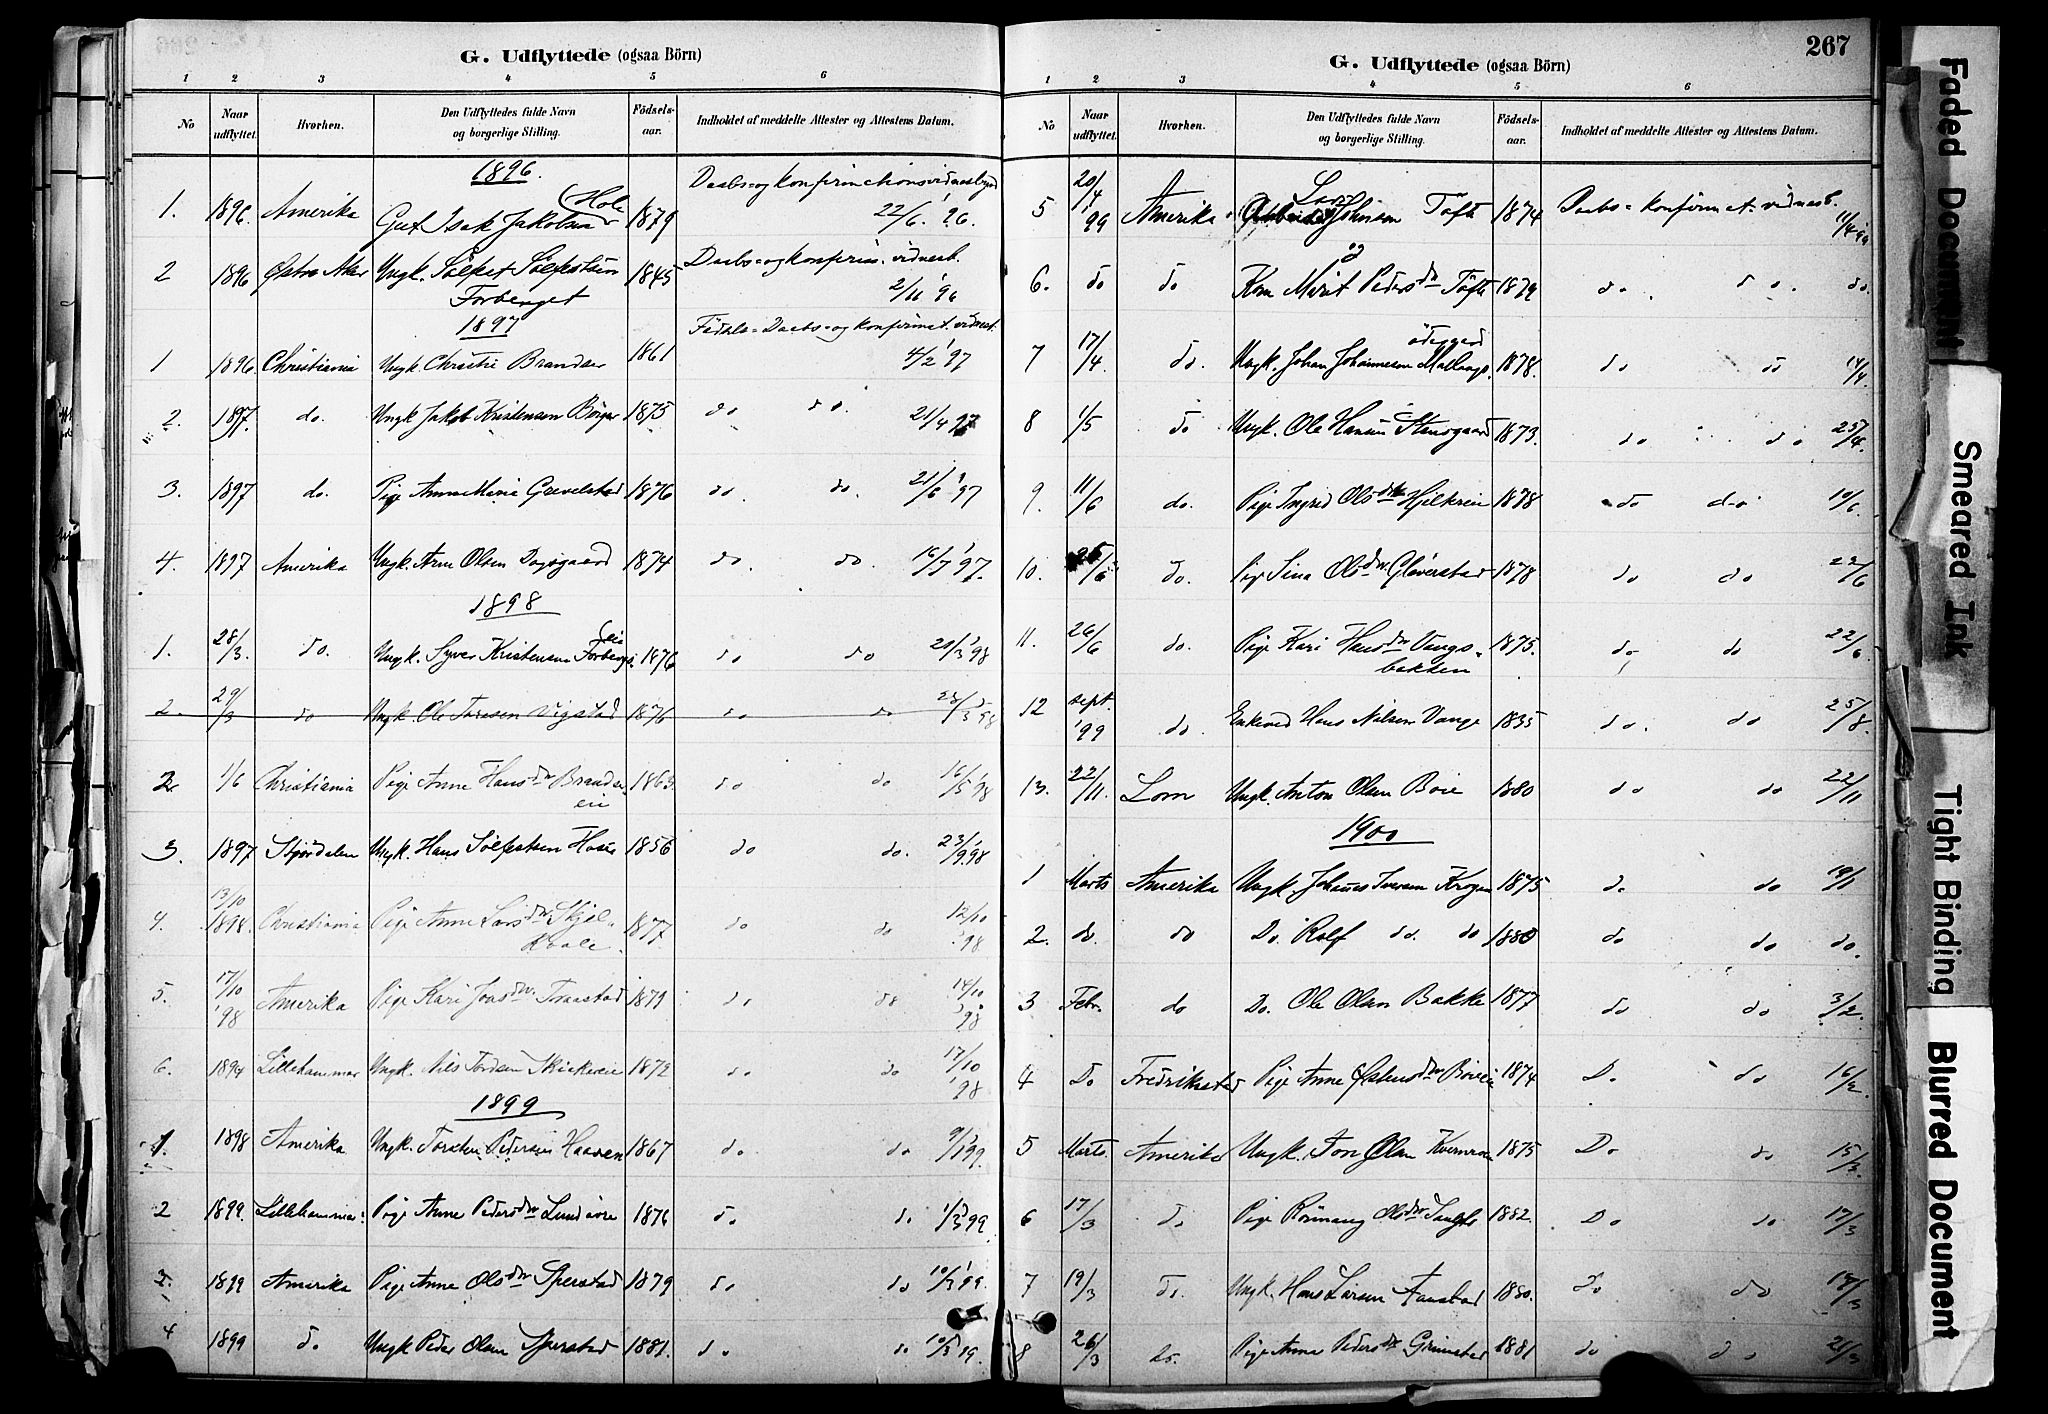 G. Udflyttede (ogsaa Börn)
1 2 3 4 5 6
No Naar udflyttet. Hvorhen. Den Udflyttedes fulde Navn og borgerlige Stilling. Födsels-aar. Indholdet af meddelte Attester og Attestens Datum.
1896.
1. 1896. Amerika Gut Isak Jakobsen (Hole 1879 Daabs- og Konfirmationsvidnesbyrd 22/6. '96.
2 1896 Østre Aker Ungk. Sölfest Sölfestsen Forberget 1845 Daabs- og Konfirm. vidnesb. 2/11 '96
1897
1 1896. Christiania Ungk. Christie Brandser 1861 Födsels- Daabs- og Konfirmat. vidnesb. 4/2 '97
2. 1897. do. Ungk Jakob Kristensen 1875 do do. 21/4 97
3. 1897 do. Pige Anne Maria Grevelstad 1876 do. do. 21/6 '97
4. 1897 Amerika Ungk. Arne Olsen Dagsgaard 1874 do. do. 16/7 '97.
1898
1. 28/3. do. Ungk. Syver Kristensen Forbergs. 1876 do do 20/3 '98
2. 29/3 do Ungk. Ole Toresen Vigstad 1876 do do 28/3 98
2 1/6 Christiania Pige Anne Hansdtr Brandsereie 1863. do do 16/5 '98
3. 1897 Stjørdalen Ungk. Hans Sölfestsen 1856 do do. 23/9 '98
4. 13/10 1898. Christiania Pige Anne Larsdtr. 1877. do do 12/10 '98
5. 17/10 '98 Amerika Pige Kari 1879 do do 14/10 '98
6. 1894 Lillehammer Ungk. Nils 1872 do do 17/10 '98
1899
1. 1898 Amerika Ungk. Torsten Pedersen Haaven 1867 do. do 9/1 '99.
2 1899. Lillehammer. Pige Anne Pedersdtr 1876 do. do 1/3 99
3. 1899 Amerika Pige Anne Olsdtr Sperstad 1879 do do 10/3 '99.
4 1899 do. Ungk Peder Olsen Sperstad 1881. do do 10/3 99.
267
G. Udflyttede (ogsaa Börn)
1 2 3 4 5 6
No Naar udflyttet. Hvorhen. Den Udflyttedes fulde Navn og borgerlige Stilling. Födsels-aar. Indholdet af meddelte Attester og Attestens Datum.
5 20/4 99 Amerika Lars Johnsen Tofte 1874 Daabs- Konfirmat. vidnesb. 11/4 99
og
6. do do Kone Marit Pedersdtr Tofte 1879 do. do. do.
7 17/4 do. Ungk. Johan Johannesen ødegaard 1878. do do 14/4.
8 1/5 do Ungk. Ole Hansen Stensgaard 1873. do do 25/4.
9. 11/6 do. Pige Ingrid Olsdtr 1878 do do 10/6.
10. 25/6 do. Pige Sina Olsdtr. Gloverstad 1878 do do 22/6
11. 26/6 do. Pige Kari Hansdtr Vangsbakken 1875. do do 22/6
12 sept. '99 do. Enkemd Hans Nilsen Vange 1835 do. do 25/8.
13. 22/11. Lom Ungk. Anton Olsen Böie 1880 do do 22/11
1900
1 Marts Amerika Ungk. Johannes Iversen Krogen 1875 do do 19/1
2. do. do Do. Rolf do. do 1880 do do do.
3 Febr. do Do. Ole Olsen Bakke 1877 do do 3/2.
4 Do Fredrikstad Pige Anne 1874 Do. do 16/2.
5 Marts. Amerika Ungk. Ton Olsen 1875 Do do 15/3.
6 17/3 do Pige 1882. Do do 17/3
7 19/3 do. Ungk. Hans Larsen 1880. Do do 19/3
8 26/3 do. Pige Anne Pedersdtr Grimstad 1881 do do 21/3
Faded Document
Smeared Ink
Tight Binding
Blurred Document